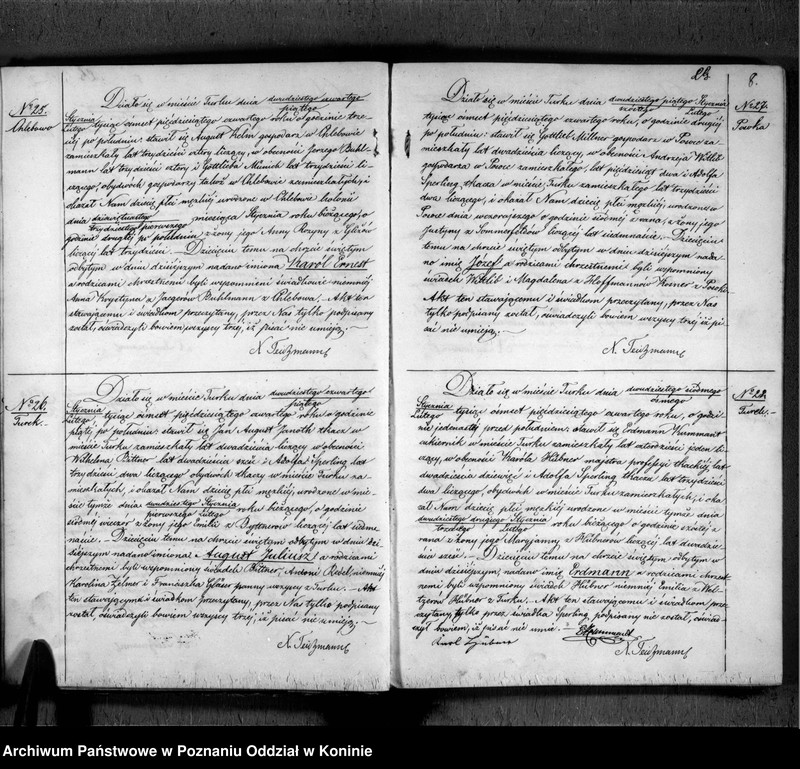 No 25.
Chlebowo
Działo się w mieście Turku dnia dwudziestego czwartego
piątego
Stycznia
Lutego tysiąc ośmset pięćdziesiątego czwartego roku o godzinie trze-
ciej po południu: stawił się August Helm gospodarz w Chlebowie
zamieszkały lat trzydzieści cztery liczący, w obecności Jerzego Buhl-
mann lat trzydzieści cztery, i Gottlieba Münich lat trzydzieści li-
czącego: obydwóch gospodarzy także w Chlebowie zamieszkałych, i
okazał Nam dziecię płci męzkiéj urodzone w Chlebowie kolonii
dnia dziewiętnastego
trzydziestego pierwszego miesiąca Stycznia roku bieżącego, o
godzinie drugiéj po południu, z żony jego Anny Rozyny z
liczącéj lat trzydzieści. — Dziecięciu temu na chrzcie świętym
odbytym w dniu dzisiejszym nadano imiona Karól Ernest
a rodzicami chrzestnemi byli wspomnieni świadkowie niemniéj
Anna Krystyna z Jaegerów Buhlmann z Chlebowa. — Akt ten
stawającemu i świadkom przeczytany, przez Nas tylko podpisany
został, oświadczyli bowiem wszyscy trzej, iż pisać nie umieją. —
N. Teitzmann
No 26.
Turek.
Działo się w mieście Turku dnia dwudziestego czwartego
piątego
Stycznia
Lutego tysiąc ośmset pięćdziesiątego czwartego roku o godzinie
piątéj po południu: stawił się Jan August Janoth tkacz w
mieście Turku zamieszkały lat dwadzieścia liczący w obecności
Wilhelma Bittner lat dwadzieścia sześć i Adolfa Sperling lat
trzydzieści dwa liczącego obydwóch tkaczy w mieście Turku za-
mieszkałych, i okazał Nam dziecię płci męzkiéj, urodzone w mie-
ście tymże dnia dwudziestego Stycznia
pierwszego Lutego roku bieżącego, o godzinie
siódméj wieczór z żony jego Emilii z liczącéj lat siedm-
naście. — Dziecięciu temu na chrzcie świętym odbytym w dniu dzi-
siejszym nadano imiona: August Juliusz a rodzicami
chrzestnemi byli wspomniony świadek Bittner, Antoni Rebel, niemniéj
Karolina Zelmer i Franciszka panny wszyscy z Turku. — Akt
ten stawającymi świadkom przeczytany, przez Nas tylko podpisany
został, oświadczyli bowiem wszyscy trzej, iż pisać nie umieją. —
N. Teitzmann
8.
No 27.
Powka
Działo się w mieście Turku dnia dwudziestego piątego Stycznia
szóstego Lutego
tysiąc ośmset pięćdziesiątego czwartego roku, o godzinie drugiéj
po południu: stawił się Gottlieb Millner gospodarz w Powce za-
mieszkały lat dwadzieścia liczący, w obecności Andrzeja Wittlib
gospodarza w Powce zamieszkałego, lat pięćdziesiąt dwa i Adolfa
Sperling, tkacza w mieście Turku zamieszkałego lat trzydzieści
dwa liczącego, i okazał Nam dziecię płci męzkiéj, urodzone w
Powce dnia wczorajszego o godzinie siódméj z rana, z żony jego
Justyny z Sommerfeldów liczącéj lat siedmnaście. — Dziecięciu
temu na chrzcie świętym odbytym w dniu dzisiejszym nada-
no imię Józef a rodzicami chrzestnemi byli wspomniony
świadek Wittlib i Magdalena z Hoffmannów z Powki.
Akt ten stawającemu i świadkom przeczytany, przez Nas
tylko podpisany został, oświadczyli bowiem wszyscy trzej iż pi-
sać nie umieją. —
N. Teitzmann
No 28.
Turek.
Działo się w mieście Turku dnia dwudziestego siódmego
ósmego
Stycznia
Lutego tysiąc ośmset pięćdziesiątego czwartego roku, o godzi-
nie jedenastéj przed południem: stawił się Erdmann
cukiernik w mieście Turku zamieszkały lat czterdzieści jeden li-
czący, w obecności Karola Hübner majstra professyi tkackiéj, lat
dwadzieścia dziewięć i Adolfa Sperling tkacza lat trzydzieści
dwa liczącego, obydwóch w mieście Turku zamieszkałych, i oka-
zał Nam dziecię płci męzkiéj urodzone w mieście tymże dnia
dwudziestego drugiego Stycznia
trzeciego Lutego roku bieżącego o godzinie szóstéj z
rana z żony jego Maryjanny z Hübnerów liczącéj lat dwadzie-
ścia sześć. — Dziecięciu temu na chrzcie świętym odbytym w
dniu dzisiejszym, nadano imię Erdmann a rodzicami chrzest-
nemi byli wspomniony świadek Hübner niemniéj Emilia z
Hübner z Turku. — Akt ten stawającemu i świadkom prze-
czytany, tylko przez świadka Sperling podpisany nie został, oświad-
czył bowiem, iż pisać nie umie. —
Karl Hübner
N. Teitzmann
Archiwum Państwowe w Poznaniu Oddział w Koninie